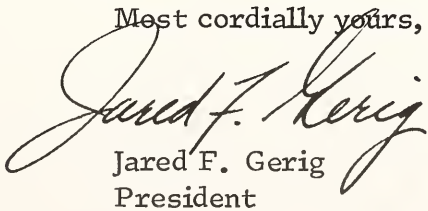 Most cordially yours,
Jared F. Gerig
Jared F. Gerig
President